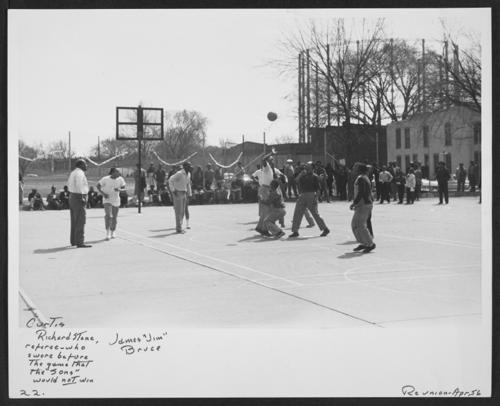 Curtis
Richard Stone,
referee-who
swore before
the game that
the "Sons"
would not win
James "Jim"
Bruce
22.
Reunion-Apr, 56